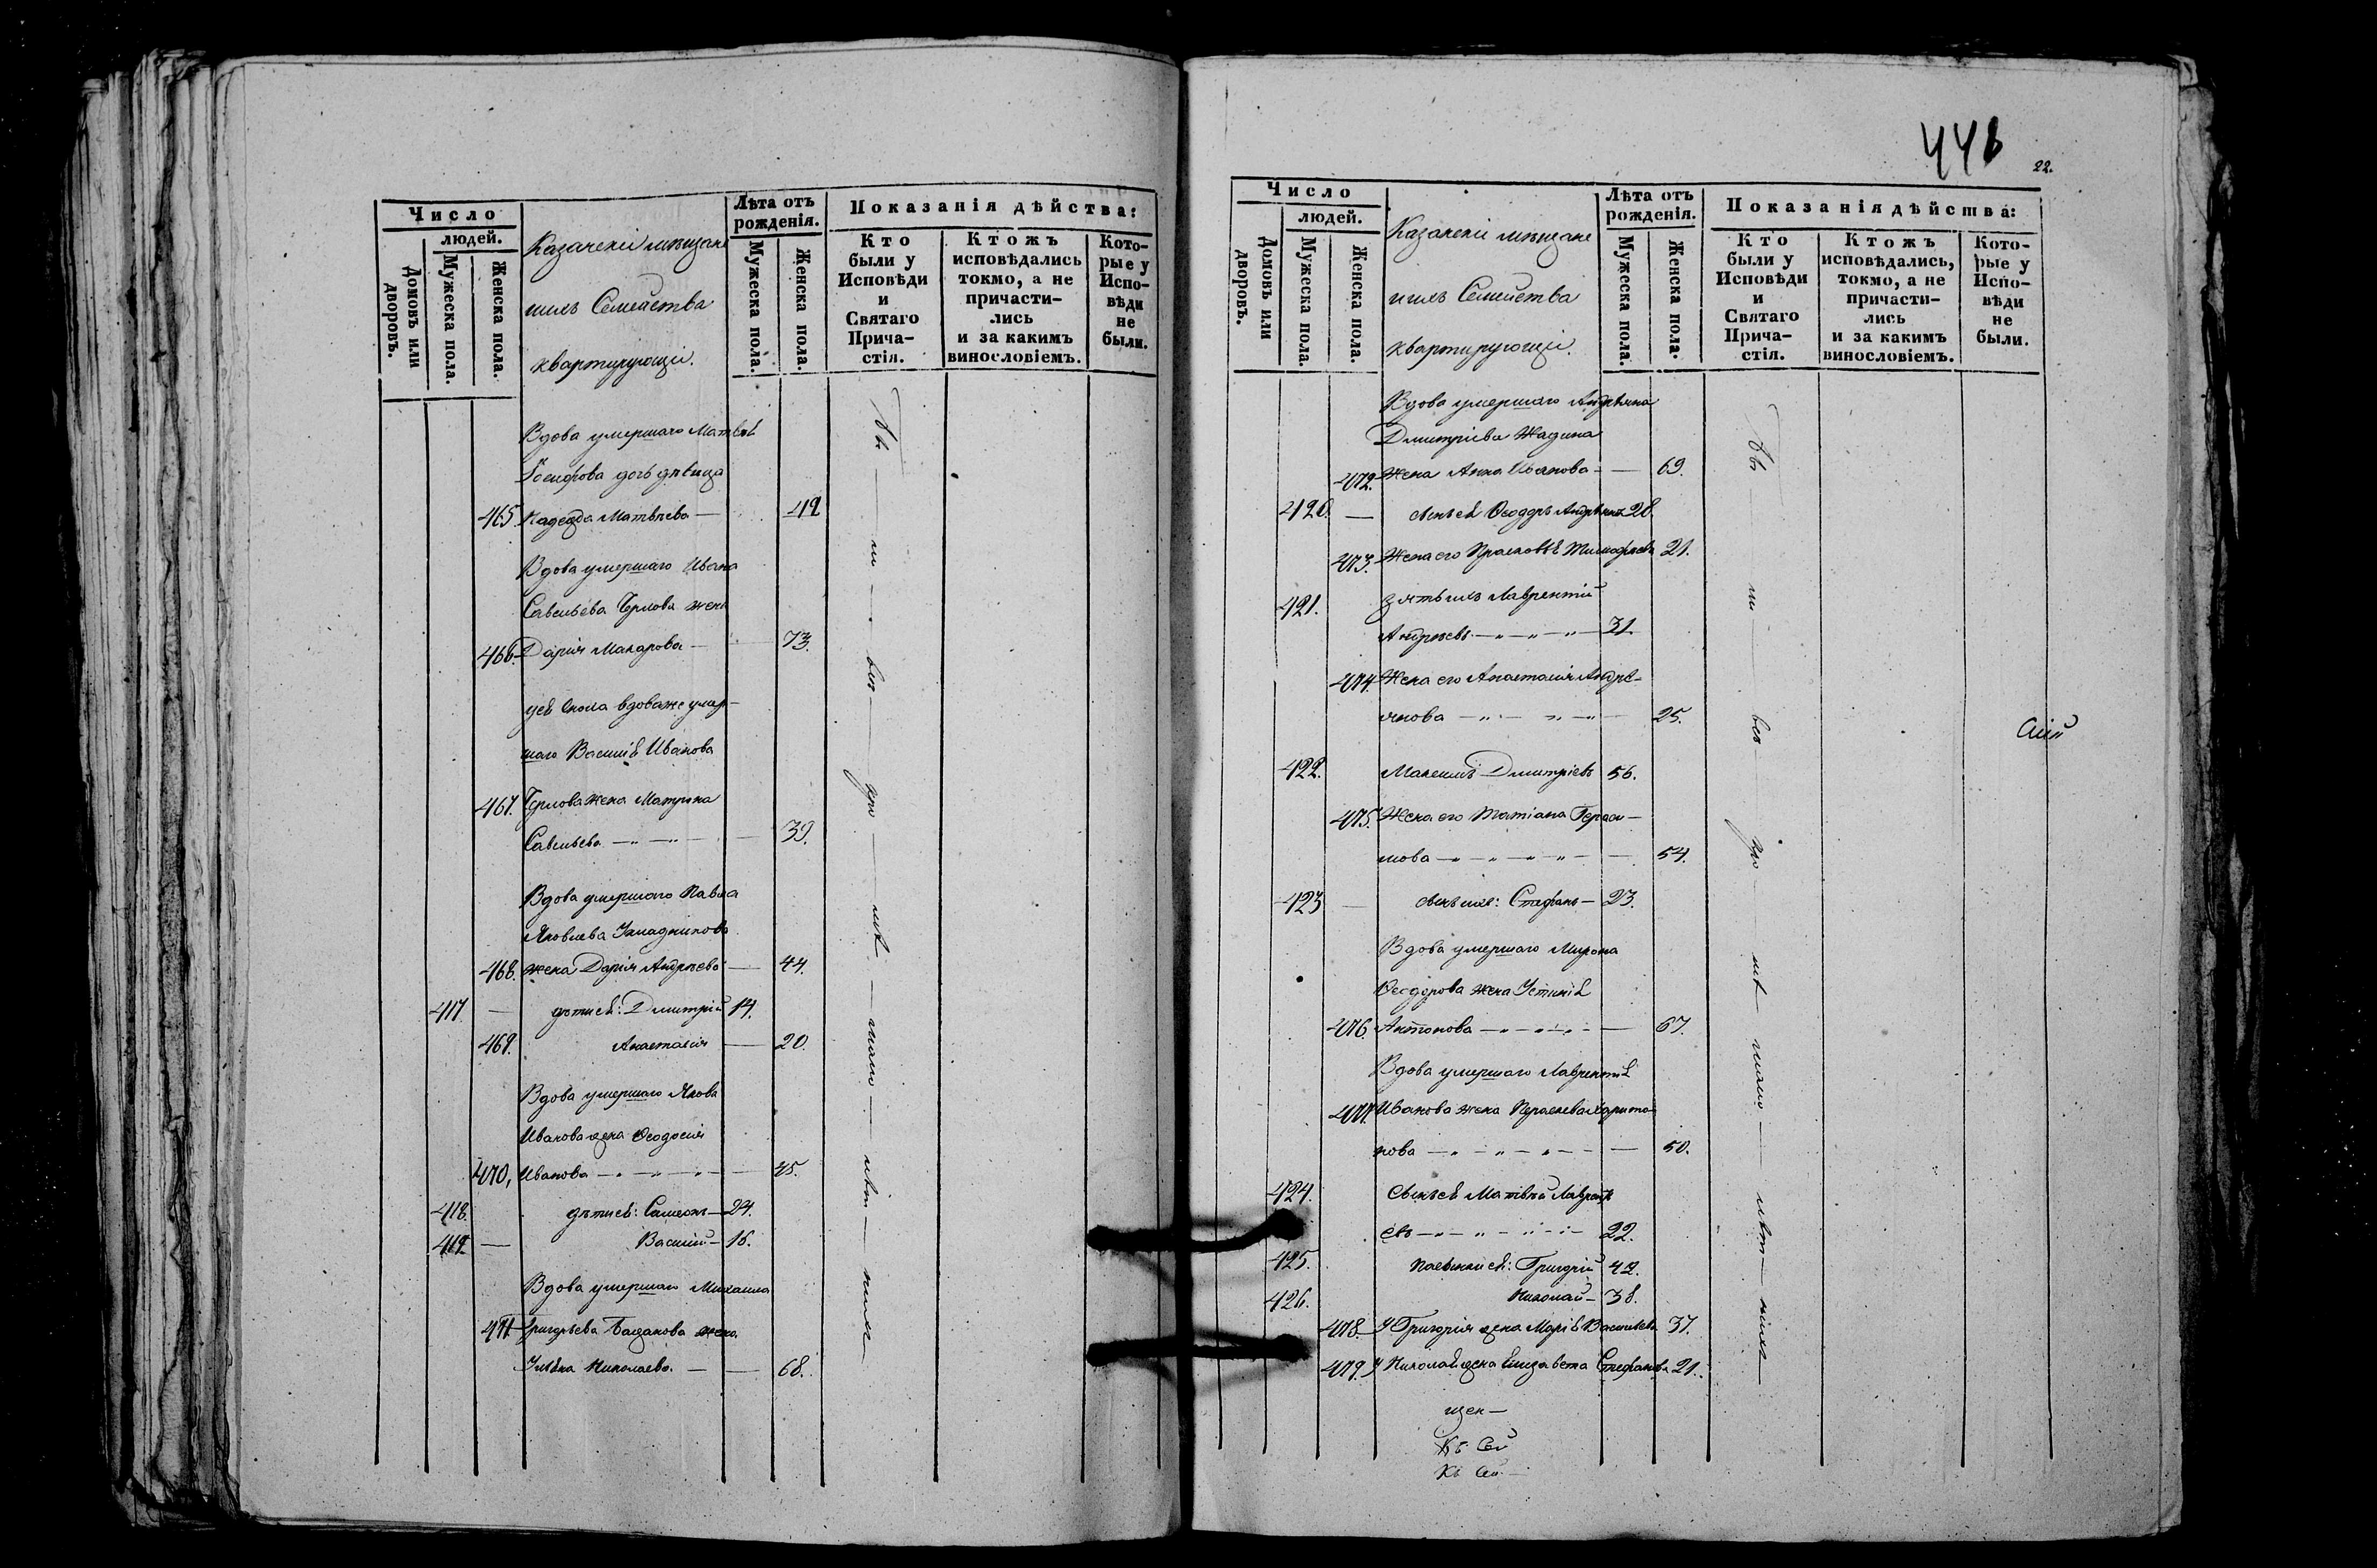 Число
людей.
Домовъ или дворовъ.
Мужеска пола.
Женска пола.
Казанскіи мѣщане
ихъ Семейства
квартирующіи.
Лѣта отъ рожденія.
Мужеска пола.
Женска пола.
Показанія дѣйства:
Кто были у Исповѣди и Святаго Причастія.
Ктожъ исповѣдались токмо, а не причастились и за какимъ винословіемъ.
Которые у Исповѣди не были.
Вдова умершаго Матвѣя
Іосифова дочь дѣвица
465. Надежда Матвѣева — 42
Вдова умершаго Ивана
Савельева жена
466. Дарія Макарова — 73.
вдова же умер-
шаго Василія Иванова
467. жена Матрона
Савельева — „ — „ — 39.
Вдова умершаго Павла
Яковлева
468. жена Дарія Андреева — 44.
417. — дѣти ея: Димитрій 14.
469. Анастасія — 20.
Вдова умершаго Якова
Иванова жена Ѳеодосія
470, Иванова — „ — „ — „ — 45.
418. дѣти ея: Симеонъ — 24.
419. — Василій — 16.
Вдова умершаго Михаила
471 Григорьева жена
Николаева — 68.
446
22.
Число
людей.
Домовъ или дворовъ.
Мужеска пола.
Женска пола.
Казанскіи мѣщане
ихъ Семейства
квартирующіи.
Лѣта отъ рожденія.
Мужеска пола.
Женска пола.
Показанія дѣйства:
Кто были у Исповѣди и Святаго Причастія.
Ктожъ исповѣдались, токмо, а не причастились и за какимъ винословіемъ.
Которые у Исповѣди не были.
Вдова умершаго Андреяна
Дмитріева Жадина
472. Жена Анна Иванова — 69.
420. — сынъ ея Ѳеодоръ 28.
473. Жена его Прасковья Тимофѣева 21.
421. зять ихъ Лаврентій
Андреевъ — „ — „ — „ — 31.
474. Жена его Анастасія Андре-
янова — „ — „ — „ — 25.
422. Максимъ Дмитріевъ 56.
475. Жена его Татіана Гераси-
мова — „ — „ — „ — „ — 54.
423 — сынъ ихъ: Стефанъ — 23.
Вдова умершаго Мирона
Ѳеодорова жена Устинія
476. Антонова — „ — „ — „ — 67.
Вдова умершаго Лаврентія
477. Иванова жена Харито-
нова — „ — „ — „ — 50.
424. Сынъ ея Матвѣй Лаврентьевъ
— „ — „ — „ — 22.
425. Пасынки ея: Григорій 42.
426. Николай — 38.
478. У Григорія жена Марія Васильева 37.
479. У Николая жена Елизавета Стефанова 21.